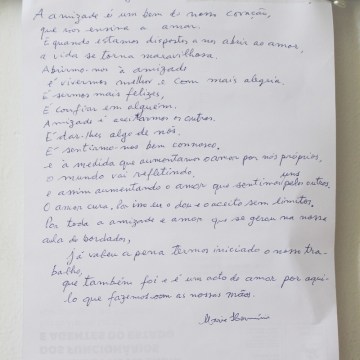 A amizade é um bem do nosso coração,
que nos ensina a amar.
E quando estamos dispostos a nos abrir ao amor,
a vida se torna maravilhosa.
Abrirmo-nos à amizade
é vivermos melhor e com mais alegria.
É sermos mais felizes,
É confiar em alguém.
Amizade é aceitarmos os outros.
É dar-lhes algo de nós.
É sentirmo-nos bem connosco,
e à medida que aumentamos o amor por nós próprios,
o mundo vai refletindo,
e assim aumentando o amor que sentimos uns pelos outros.
O amor cura, Por isso eu o dou e o aceito sem limites,
Por toda a amizade e amor que se gerou na nossa
aula de bordados,
já valeu a pena termos iniciado o nosso tra-
balho,
que também foi e é um acto de amor por aqui-
lo que fazemos com as nossas mãos.